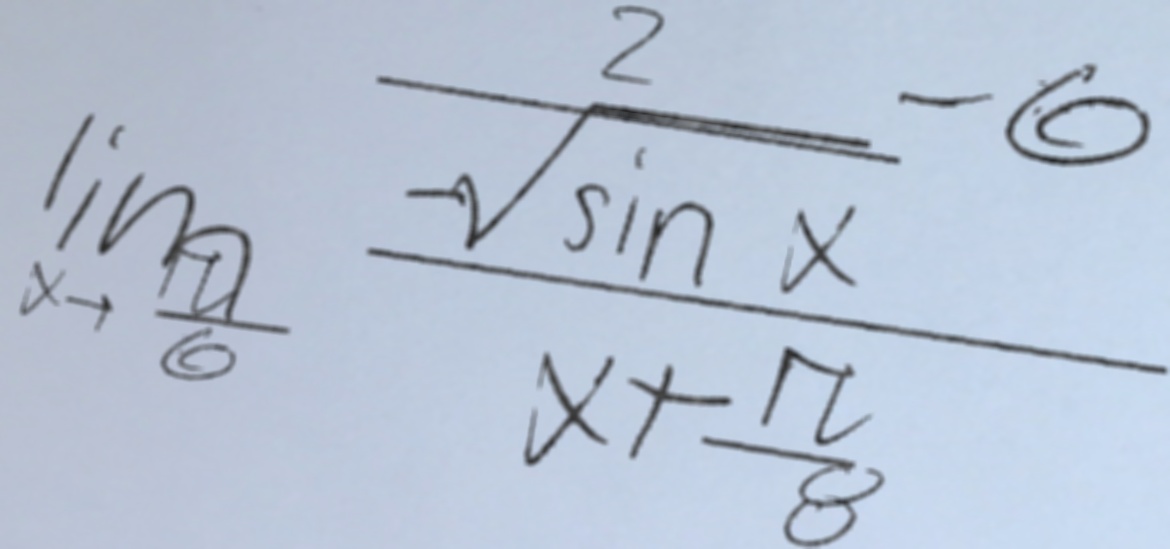 lim x→π/6 (2/(-√(sin x)) - 6)/(x + π/8)